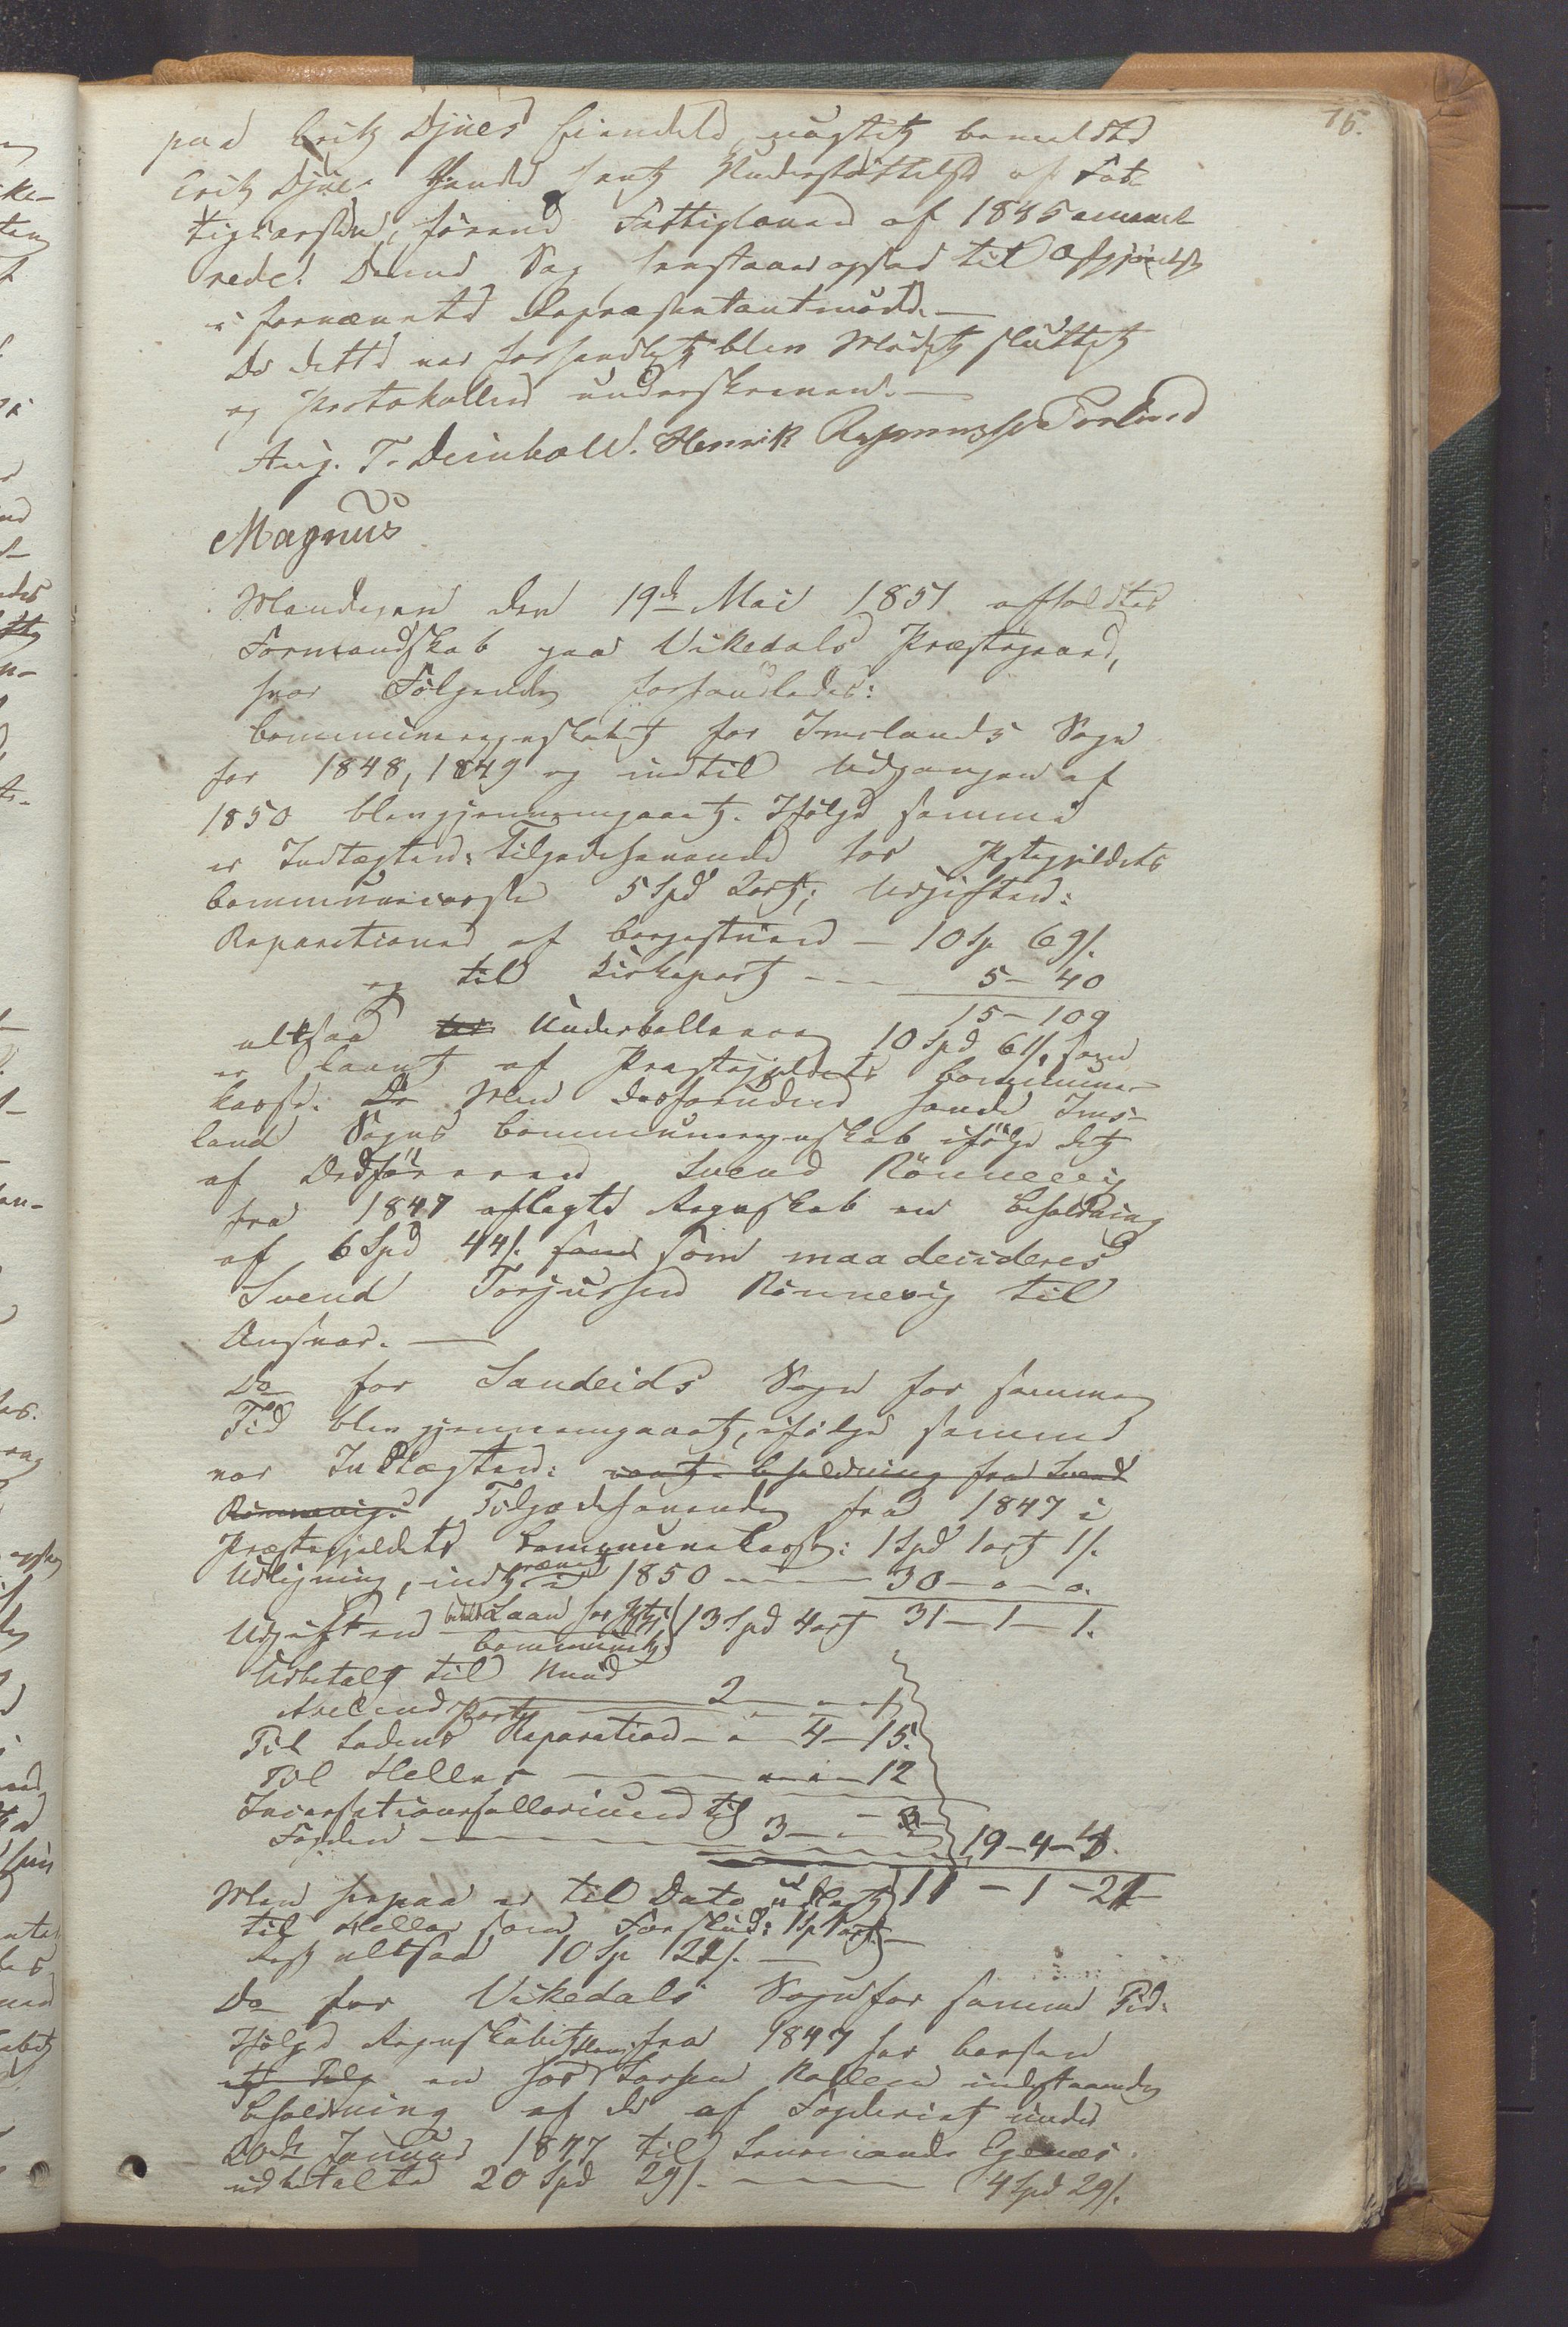 75.
paa Erik Djues Eiendele, uagtet bemeldte
Erik Djues havde havt Understøttelse af Fat-
tigkassen, førend Fattigloven af 1845 emane-
rede. Denne Sag henstaaer ogsaa til Afgjørelse
i fornævnte Repræsentantmøde. —
Da dette var forhandlet blev Mødet sluttet
og Protokollen underskreven. —
Aug. T. Deinboll. Henrik Rasmussen
Magnus
Mandagen den 19de Mai 1851 afholdtes
Formandskab paa Vikedals Præstegaard,
hvor Følgende forhandledes:
Communeregnskabet for Imslands Sogn
for 1848, 1849 og indtil Udgangen af
1850 blev gjennemgaaet. Ifølge samme
er Indtægten: Tilgodehavende hos Pstegjeldets
Communecasse 5 Spd 2ort; Udgiften:
Reparationer af — 10 Sp 69 s.
og til Kirkeport — — 5 - 40
15 - 109
altsaa Underballance 10 Spd 61 s, som
er laant af Præstegjeldets Commune-
kasse. Men desforuden havde Ims-
land Sogns Communeregnskab ifølge det
af Ordføreren Svend Rönnevig
fra 1847 aflagte Regnskab en Beholdning
af 6 Spd 44 s. som maa decideres
Svend Torjussen Rönnevig til
Ansvar. —
Do for Sandeids Sogn for samme
Tid blev gjennemgaaet, ifølge samme
var Indtægten: Beholdning fra Svend
Rönnevig: Tilgodehavende fra 1847 i
Præstegjeldets Communekasse: 1 Spd 1 ort 1 s.
Udligning, indkrævet i 1850 — — — 30 - o - o.
Udgiften betalt Laan hos Pstgj: 13 Spd 4 ort 31 - 1 - 1.
Communek.
Udbetalt til Knud
Porto — 2
Til Ladens Reparation - " 4 - 15.
Til Heller — — 12
til
Fogden — — — 3 — 3
19 - 4 - 4.
Men herpaa er til Dato udbetalt 11 - 1 - 21
til Heller som Forskud: 1 Sp 1 ort. —
Rest altsaa 10 Sp 21 s. —
Do for Vikedals Sogn for samme Tid:
Ifølge Regnskabet fra 1847 har Cassen
en hos Larsen indstaaende
Beholdning af de af Fogderiet under
20de Januar 1847 til Lensmand
udbetalte 20 Spd 29 s. — — — 4 Spd 29 s.